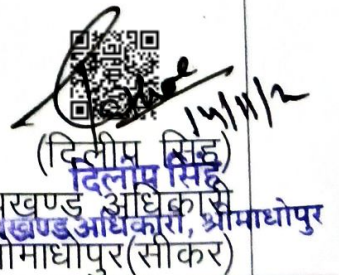 (दिलीप सिंह)
दिलीप सिंह
खण्ड अधिकारी
खण्ड अधिकारी, श्रीमाधोपुर
माधोपुर(सीकर)